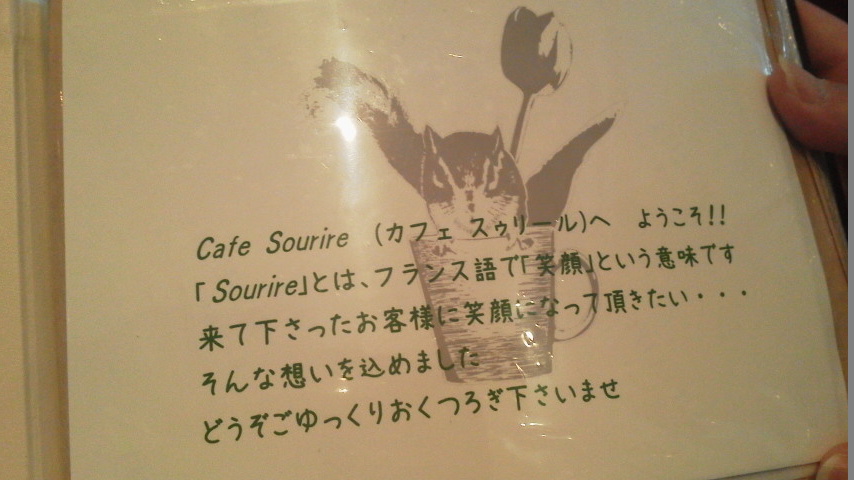 Cafe Sourire (カフェ スゥリール)へ ようこそ!!
「Sourire」とは、フランス語で「笑顔」という意味です
来て下さったお客様に笑顔になって頂きたい・・・
そんな想いを込めました
どうぞごゆっくりおくつろぎ下さいませ